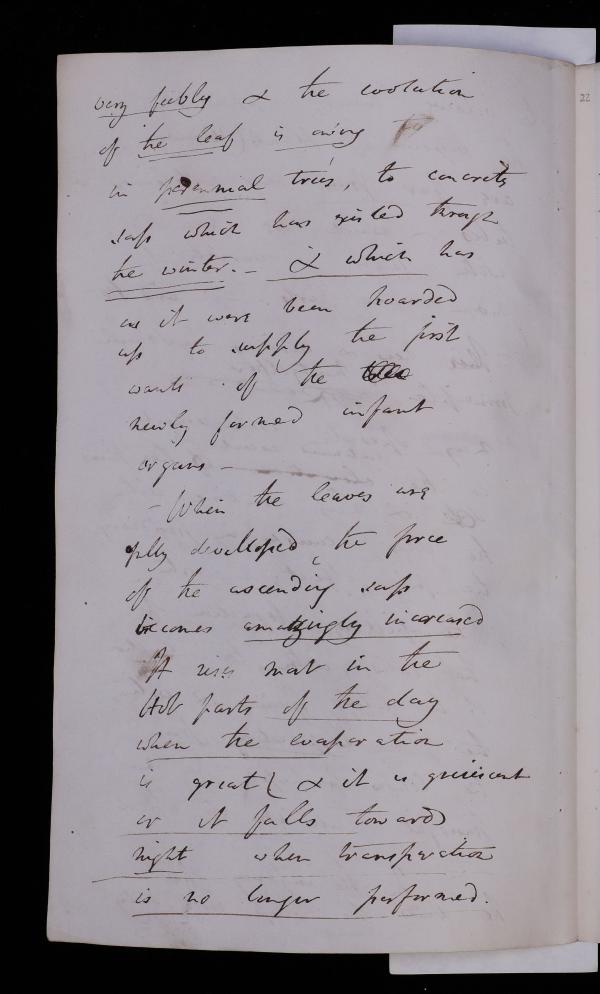 very feebly & the evolution
of the leaf is owing to
in perennial trees, to concrete
sap which has existed through
the winter. – & which has
as it were been hoarded
up to supply the first
wants of the
newly formed infant
organs –
– When the leaves are
fully developed, the force
of the ascending sap
becomes amazingly increased
It rises most in the
Hot parts of the day
when the evaporation
is great & it is quiescent
or it falls towards
night when transpiration
is no longer performed.
22